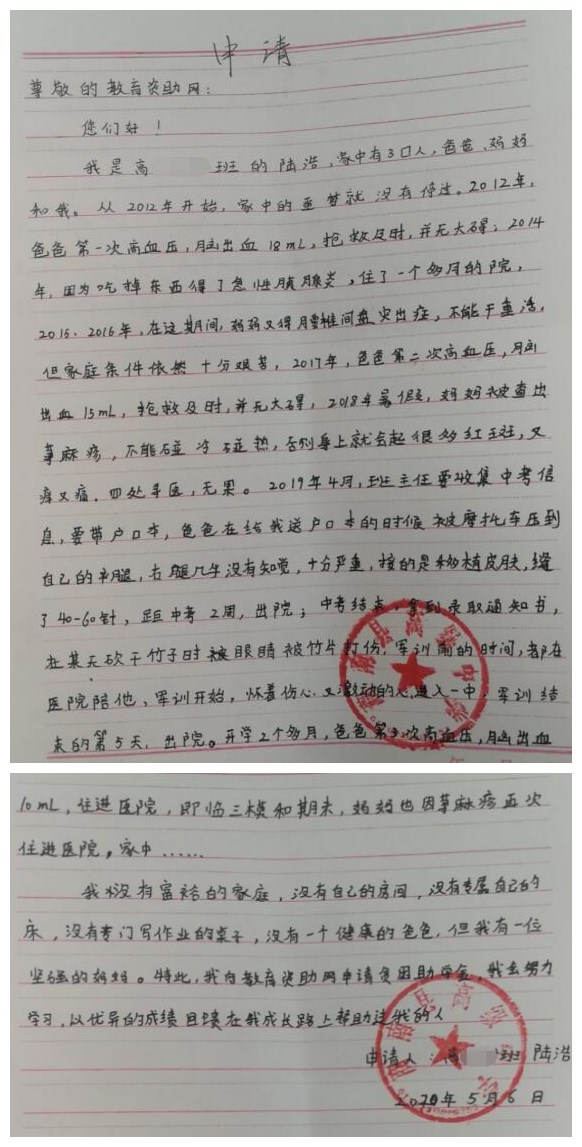 申请
尊敬的教育资助网:
您们好!
我是高 班的陆浩,家中有3口人,爸爸、妈妈
和我。从2012年开始,家中的噩梦就没有停过。2012年,
爸爸第一次高血压,脑出血18mL,抢救及时,并无大碍;2014
年,因为吃掉东西得了急性胰腺炎,住了一个多月的院,
2015、2016年,在这期间,妈妈又得腰椎间盘突出症,不能干重活,
但家庭条件依然十分艰苦,2017年,爸爸第二次高血压,脑
出血15mL,抢救及时,并无大碍,2018年暑假,妈妈被查出
荨麻疹,不能碰冷碰热,否则身上就会起很多红斑,又
痒又痛,四处寻医,无果。2019年4月,班主任要收集中考信
息,要带户口本,爸爸在给我送户口本的时候被摩托车压到
自己的右腿,右腿几乎没有知觉,十分严重,接的是移植皮肤,缝
了40-60针,距中考2周,出院;中考结束,拿到录取通知书,
在某天砍干竹子时被眼睛被竹片打伤,军训前的时间,都在
医院陪他,军训开始,怀着伤心又激动的心进入一中,军训结
束的第5天,出院。开学2个多月,爸爸第3次高血压,脑出血
10mL,住进医院,即临三模和期末,妈妈也因荨麻疹再次
住进医院,家中……
我没有富裕的家庭,没有自己的房间,没有专属自己的
床,没有专门写作业的桌子,没有一个健康的爸爸,但我有一位
坚强的妈妈。特此,我向教育资助网申请贫困助学金,我会努力
学习,以优异的成绩回馈在我成长路上帮助过我的人
申请人:高 班 陆浩
2020年5月6日